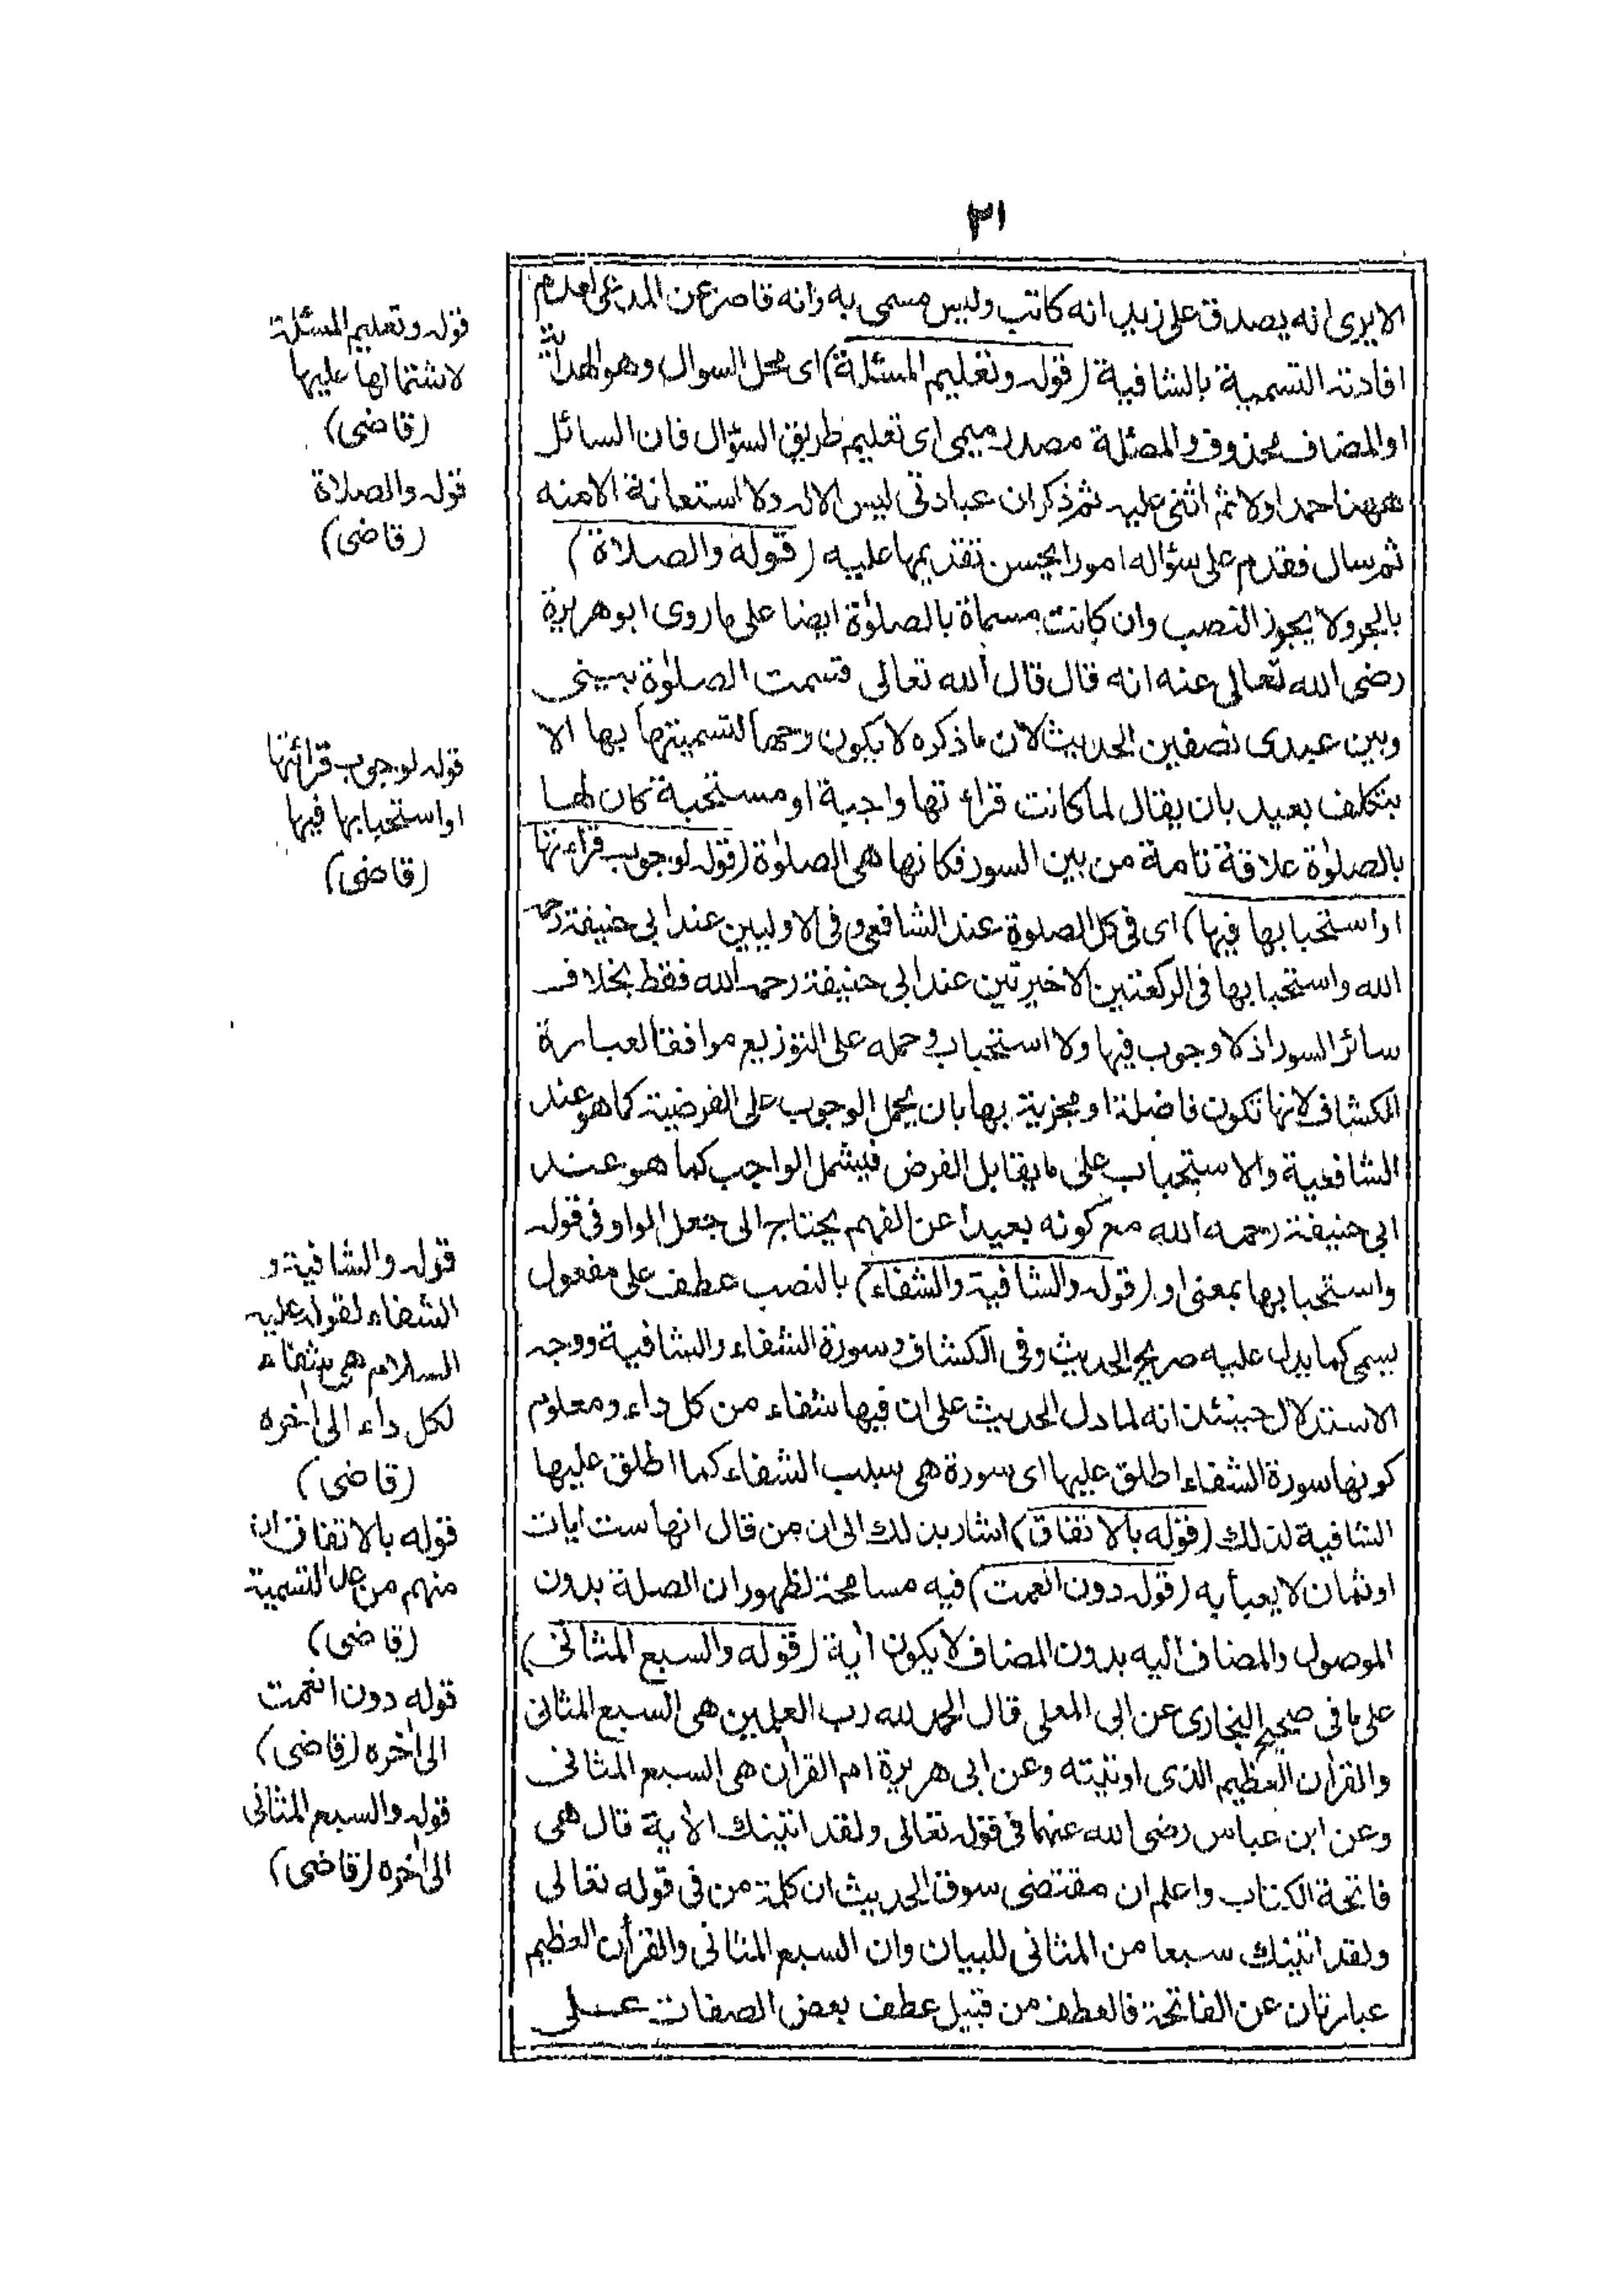 ٣١
الا يرى انه يصدق على زيد انه كاتب وليس مسمى به وانه قاصر عن المدعى لعدم
افادته التسمية بالشافية (قوله وتعليم المسئلة) اى محل السوال وهو الهداية
او المضاف محذوف والمصئلة مصدر ميمى اى تعليم طريق السؤال فان السائل
ههنا حمد اولا ثم اثنى عليه ثم ذكر ان عبادتى ليس الا له ولا استعانة الا منه
ثم سال فقدم على سؤاله امورا يحسن تقديمها عليه (قوله والصلاة)
بالجر ولا يجوز النصب وان كانت مسماة بالصلوٰة ايضا على ما روى ابو هريرة
رضى الله تعالى عنه انه قال قال الله تعالى قسمت الصلوٰة بينى
وبين عبدى نصفين الحديث لان ما ذكره لا يكون وجها لتسميتها بها الا
بتكلف بعيد بان يقال لما كانت قراء تها واجبة او مستحبة كان لها
بالصلوٰة علاقة تامة من بين السور فكانها هى الصلوٰة (قوله لوجوب قراءتها
او استحبابها فيها) اى فى كل الصلوة عند الشافعى وفى الاوليين عند ابى حنيفة رحمه
الله واستحبابها فى الركعتين الاخيرتين عند ابى حنيفة رحمه الله فقط بخلاف
سائر السور اذ لا وجوب فيها ولا استحباب وحمله على التوزيع موافقا لعبارة
الكشاف لانها تكون فاضلة او مجزية بها بان يحمل الوجوب على الفرضية كما هو عند
الشافعية والاستحباب على ما يقابل الفرض فيشمل الواجب كما هو عند
ابى حنيفة رحمه الله مع كونه بعيدا عن الفهم يحتاج الى جعل الواو فى قوله
واستحبابها بمعنى او (قوله والشافية والشفاء) بالنصب عطف على مفعول
يسمى كما يدل عليه صريح الحديث وفى الكشاف وسورة الشفاء والشافية ووجه
الاستدلال حينئذ انه لما دل الحديث على ان فيها شفاء من كل داء ومعلوم
كونها سورة الشفاء اطلق عليها اى سورة هى سبب الشفاء كما اطلق عليها
الشافية لذلك (قوله بالاتفاق) اشار بذلك الى ان من قال انها ست ايات
او ثمان لا يعبأ به (قوله دون انعمت) فيه مسامحة لظهور ان الصلة بدون
الموصول والمضاف اليه بدون المضاف لا يكون اٰية (قوله والسبع المثانى)
على ما فى صحيح البخارى عن ابى المعلى قال الحمد لله رب العلمين هى السبع المثانى
والقراٰن العظيم الذى اوتيته وعن ابى هريرة ام القراٰن هى السبع المثانى
وعن ابن عباس رضى الله عنهما فى قوله تعالى ولقد اتينك الاٰية قال هى
فاتحة الكتاب واعلم ان مقتضى سوق الحديث ان كلمة من فى قوله تعالى
ولقد اتينك سبعا من المثانى للبيان وان السبع المثانى والقراٰن العظيم
عبارتان عن الفاتحة فالعطف من قبيل عطف بعض الصفات على
قوله وتعليم المسئلة
لاشتمالها عليها
(قاضى)
قوله والصلاة
(قاضى)
قوله لوجوب قرائتها
او استحبابها فيها
(قاضى)
قوله والشافية و
الشفاء لقوله عليه
السلام هى شفاء
لكل داء الى اٰخره
(قاضى)
قوله بالاتفاق ان
منهم من عد التسمية
(قاضى)
قوله دون انعمت
الى اٰخره (قاضى)
قوله والسبع المثانى
الى اٰخره (قاضى)